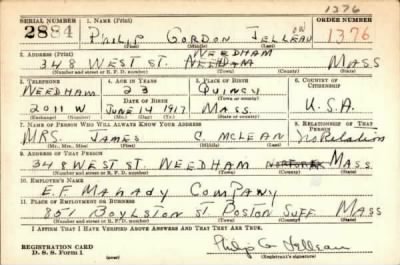 1376
SERIAL NUMBER 1. NAME (Print) ORDER NUMBER
2884 PHILIP GORDON JELLEAU 1376
(First) (Middle) (Last)
2. ADDRESS (Print)
NEEDHAM
348 WEST ST. NEEDHAM MASS
(Number and street or R. F. D. number) (Town) (County) (State)
3. TELEPHONE 4. AGE IN YEARS 5. PLACE OF BIRTH 6. COUNTRY OF CITIZENSHIP
NEEDHAM 23 QUINCY
DATE OF BIRTH (Town or county)
2011 W JUNE 14 1917 MASS. U.S.A.
(Exchange) (Number) (Mo.) (Day) (Yr.) (State or country)
7. NAME OF PERSON WHO WILL ALWAYS KNOW YOUR ADDRESS 8. RELATIONSHIP OF THAT PERSON
MRS. JAMES C. MCLEAN No Relation
(Mr., Mrs., Miss) (First) (Middle) (Last)
9. ADDRESS OF THAT PERSON
348 WEST ST. NEEDHAM MASS.
(Number and street or R. F. D. number) (Town) (County) (State)
10. EMPLOYER'S NAME
E.F. MAHADY COMPANY
11. PLACE OF EMPLOYMENT OR BUSINESS
851 BOYLSTON ST BOSTON SUFF. MASS
(Number and street or R. F. D. number) (Town) (County) (State)
I AFFIRM THAT I HAVE VERIFIED ABOVE ANSWERS AND THAT THEY ARE TRUE.
REGISTRATION CARD
D. S. S. Form 1
Philip G Jelleau
(Registrant's signature)